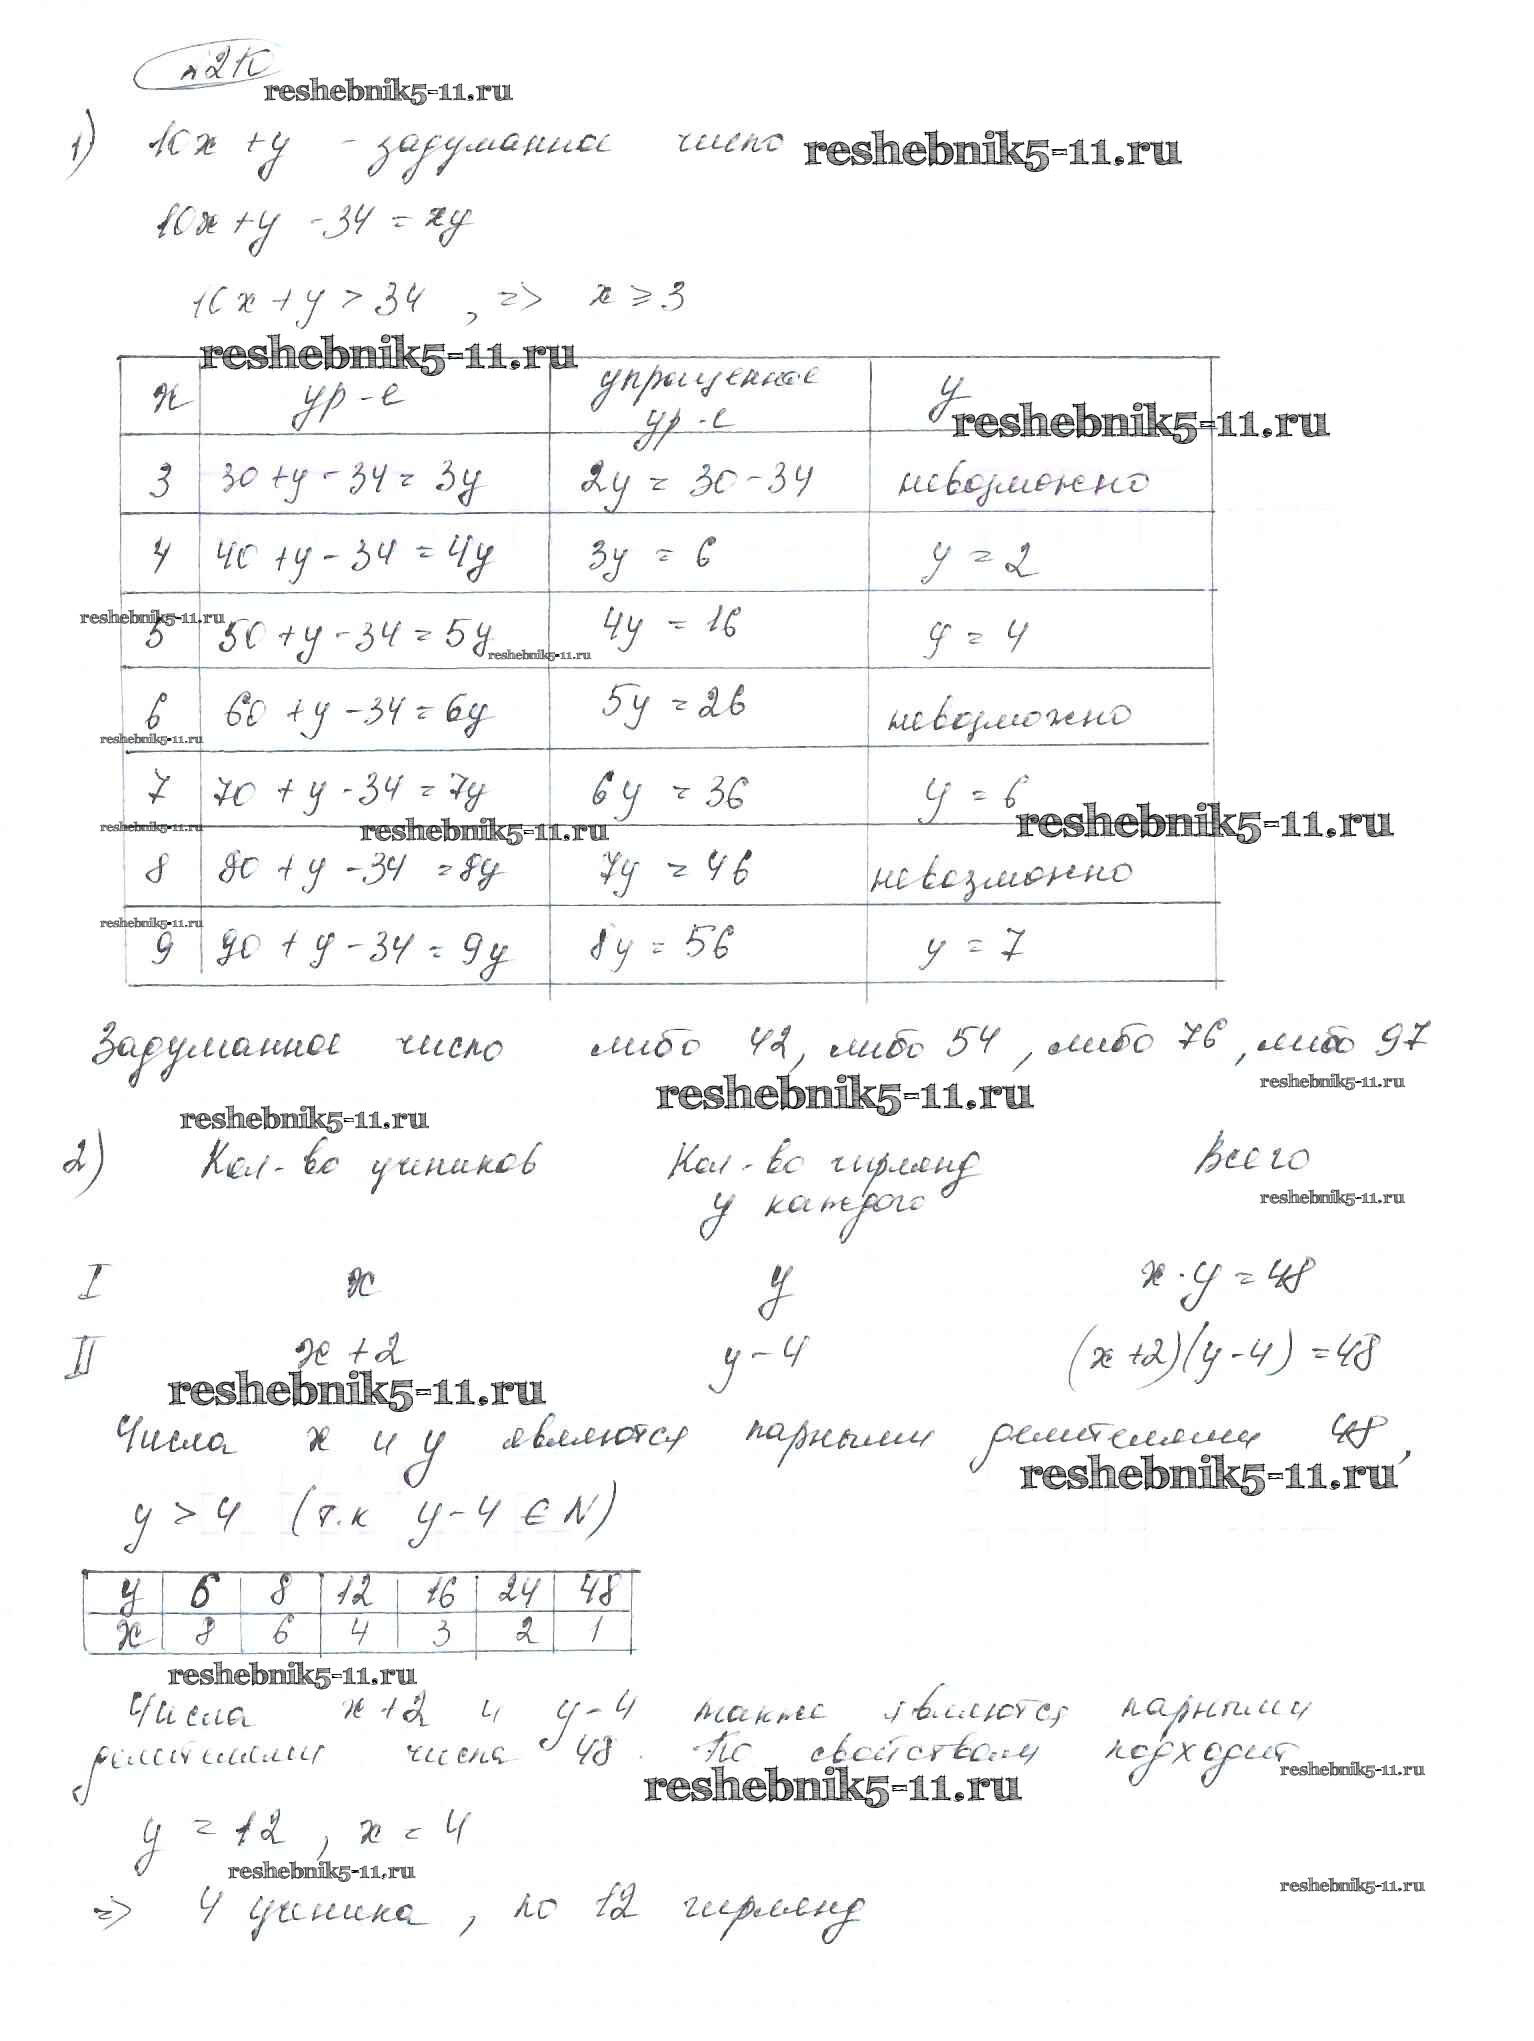 №2К
reshebnik5-11.ru
1) 10x + y - задуманное число reshebnik5-11.ru
10x + y - 34 = xy
10x + y > 34 , => x ≥ 3
reshebnik5-11.ru
x ур-е упрощенное ур-е y
reshebnik5-11.ru
3 30 + y - 34 = 3y 2y = 30 - 34 невозможно
4 40 + y - 34 = 4y 3y = 6 y = 2
reshebnik5-11.ru
5 50 + y - 34 = 5y 4y = 16 y = 4
reshebnik5-11.ru
6 60 + y - 34 = 6y 5y = 26 невозможно
reshebnik5-11.ru
7 70 + y - 34 = 7y 6y = 36 y = 6
reshebnik5-11.ru reshebnik5-11.ru reshebnik5-11.ru
8 80 + y - 34 = 8y 7y = 46 невозможно
reshebnik5-11.ru
9 90 + y - 34 = 9y 8y = 56 y = 7
Задуманное число либо 42, либо 54, либо 76, либо 97
reshebnik5-11.ru reshebnik5-11.ru
reshebnik5-11.ru
2) Кол-во учеников Кол-во гирлянд у каждого Всего
reshebnik5-11.ru
I x y x · y = 48
II x + 2 y - 4 (x + 2)(y - 4) = 48
reshebnik5-11.ru
Числа x и y являются парными делителями 48,
reshebnik5-11.ru
y > 4 (т.к y - 4 ∈ N)
y 6 8 12 16 24 48
x 8 6 4 3 2 1
reshebnik5-11.ru
Числа x + 2 и y - 4 также являются парными
делителями числа 48. По свойствам подходит
reshebnik5-11.ru reshebnik5-11.ru
y = 12 , x = 4
reshebnik5-11.ru
=> 4 ученика , по 12 гирлянд
reshebnik5-11.ru